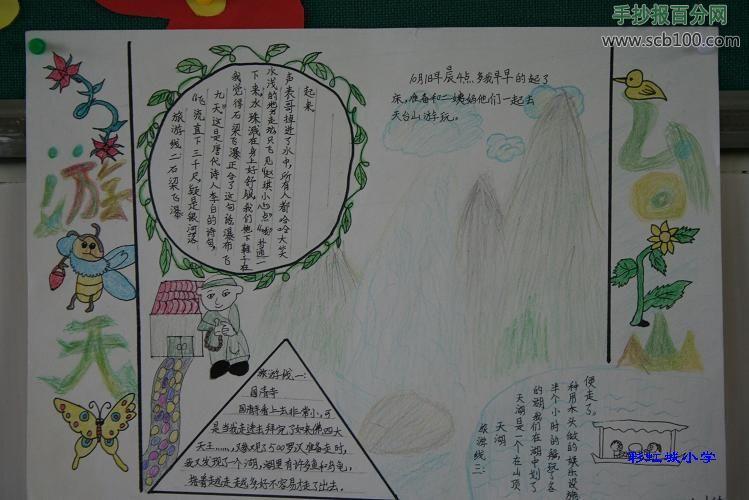 手抄报百分网
www.scb100.com
10月1日早晨4点,我早早的起了
床,准备和二姨妈他们一起去
天台山游玩。
游
天
旅游线二:石梁飞瀑
“飞流直下三千尺,疑是银河落
九天”这是唐代诗人李白的诗句,
我觉得石梁飞瀑正合了这句话瀑布飞
下来,水珠溅在身上好舒服。我们脱下鞋子在
水浅的地方走,赵琪小心点“扑通一
声表哥掉进了水中,所有人都哈哈大笑
起来
旅游线一:
国清寺
国清寺看上去非常小,可
是当我走进去拜完了如来佛四大
天王……,参观了500罗汉准备走时,
我又发现了一个湖,湖里有许多鱼和乌龟,
接着越走越多好不容易才走了出去。
旅游线三:
天湖
天湖是一个在山顶
的湖我们在湖中划了
半个小时的船玩了各
种用木头做的娱乐设施
便走了。
彩虹城小学